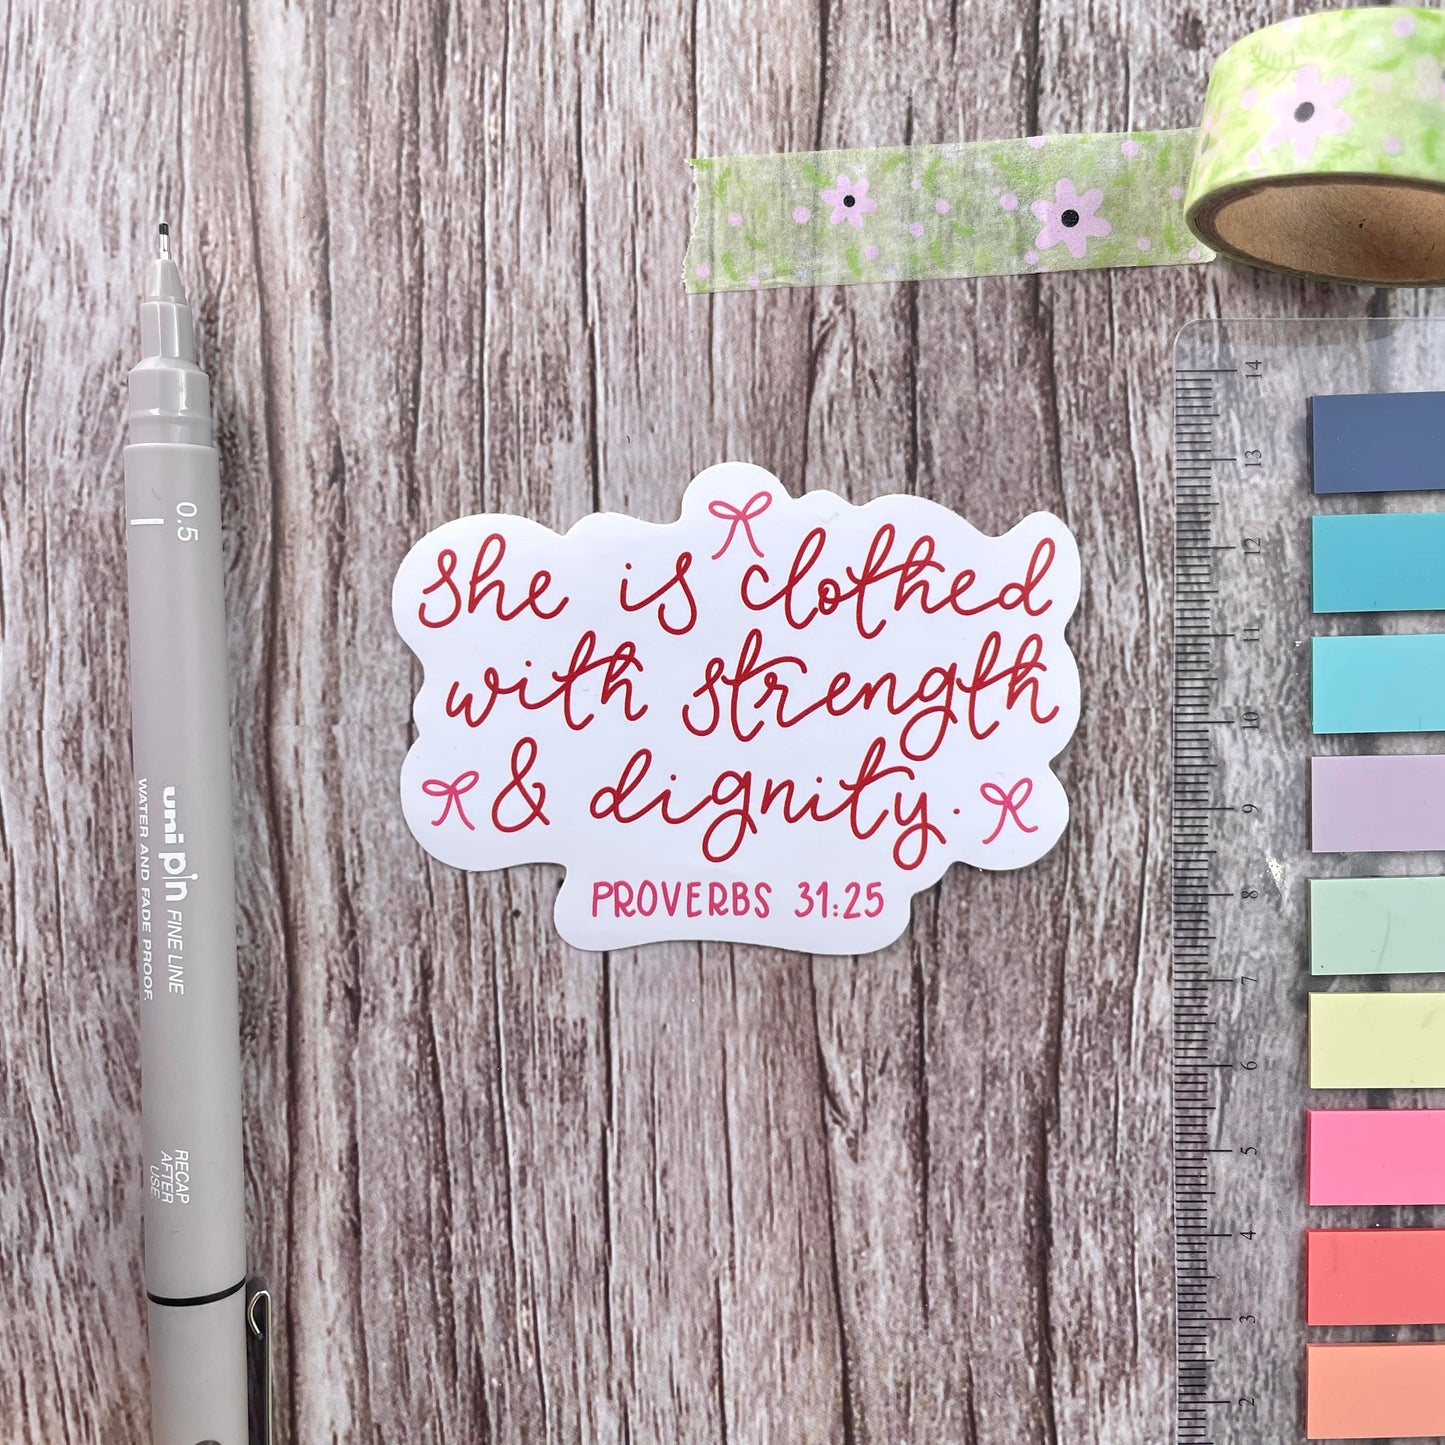 She is clothed
with strength
& dignity.
PROVERBS 31:25
0.5
uni pin FINE LINE
WATER AND FADE PROOF.
RECAP
AFTER
USE
14
13
12
11
10
9
8
7
6
5
4
3
2